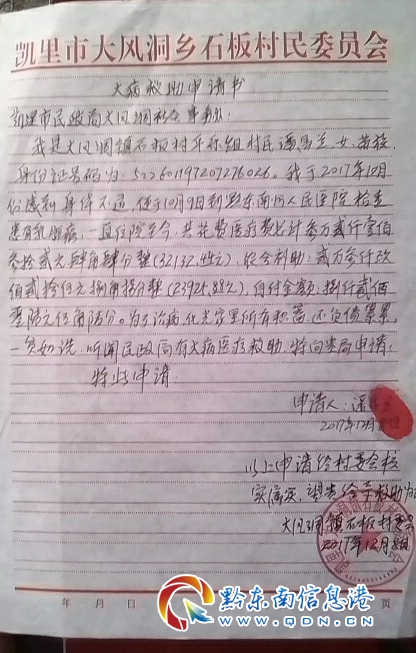 凯里市大风洞乡石板村民委员会
大病救助申请书
凯里市民政局大风洞社会事务办:
我是大风洞镇石板村 组村民潘昌兰,女,苗族,
身份证号码为:522601197207276026。我于2017年10月
份感到身体不适,便于10月9日到黔东南州人民医院检查
患有乳腺癌,一直住院至今,共花费医疗费总计叁万贰仟壹佰
叁拾贰元肆角肆分整(32132.44元),农合补助:贰万叁仟玖
佰贰拾伍元捌角捌分整(23925.88元),自付金额:捌仟贰佰
零陆元伍角陆分。为了治病,花光家里所有积蓄,还负债累累,
一贫如洗。听闻民政局有大病医疗救助,特向贵局申请。
特此申请
申请人:潘
2017年12月 日
以上申请经村委会核
实属实,望贵给予救助为
大风洞镇石板村委会
2017年12月8日
年 月 日 页
黔东南信息港
www.QDN.cn